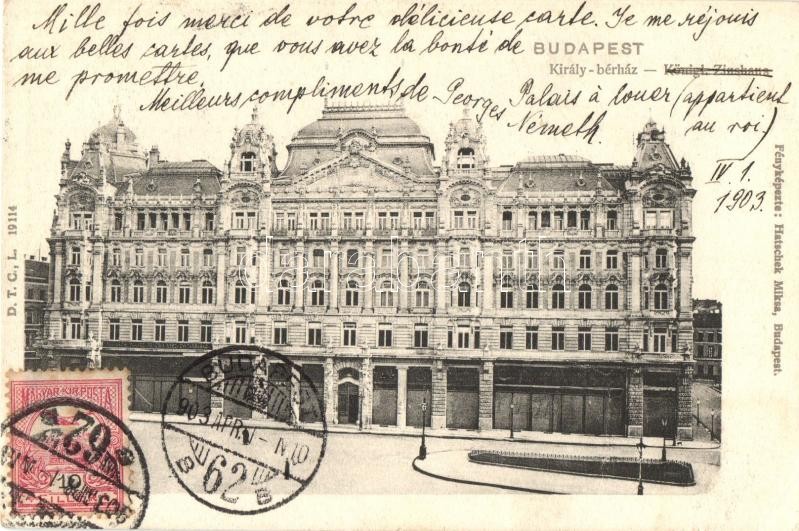 Mille fois merci de votre délicieuse carte. Je me réjouis
aux belles cartes, que vous avez la bonté de
me promettre.
BUDAPEST
Király-bérház — Königl. Zinshaus
Meilleurs compliments de Georges Németh.
Palais à louer (appartient
au roi.)
IV. 1.
1903.
Fényképezte: Hatschek Miksa, Budapest.
D. T. C., L. 19114
darabanth
MAGYAR KIR. POSTA
10
BUDAPEST
903 APR. 1
62
62